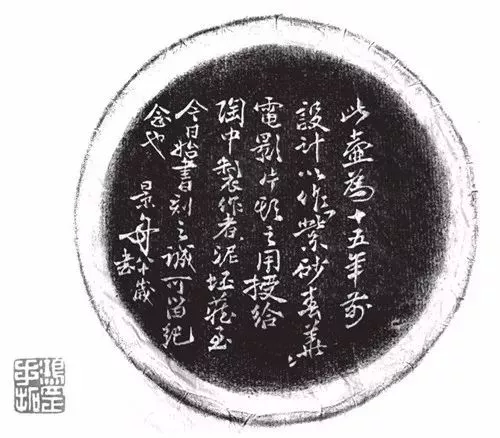 此壺為十五年前
設計以作紫砂春華
電影片頭之用授給
陶中製作者泥坯藏至
今日始書刻之誠可留紀
念也 景舟
十歲
手拓